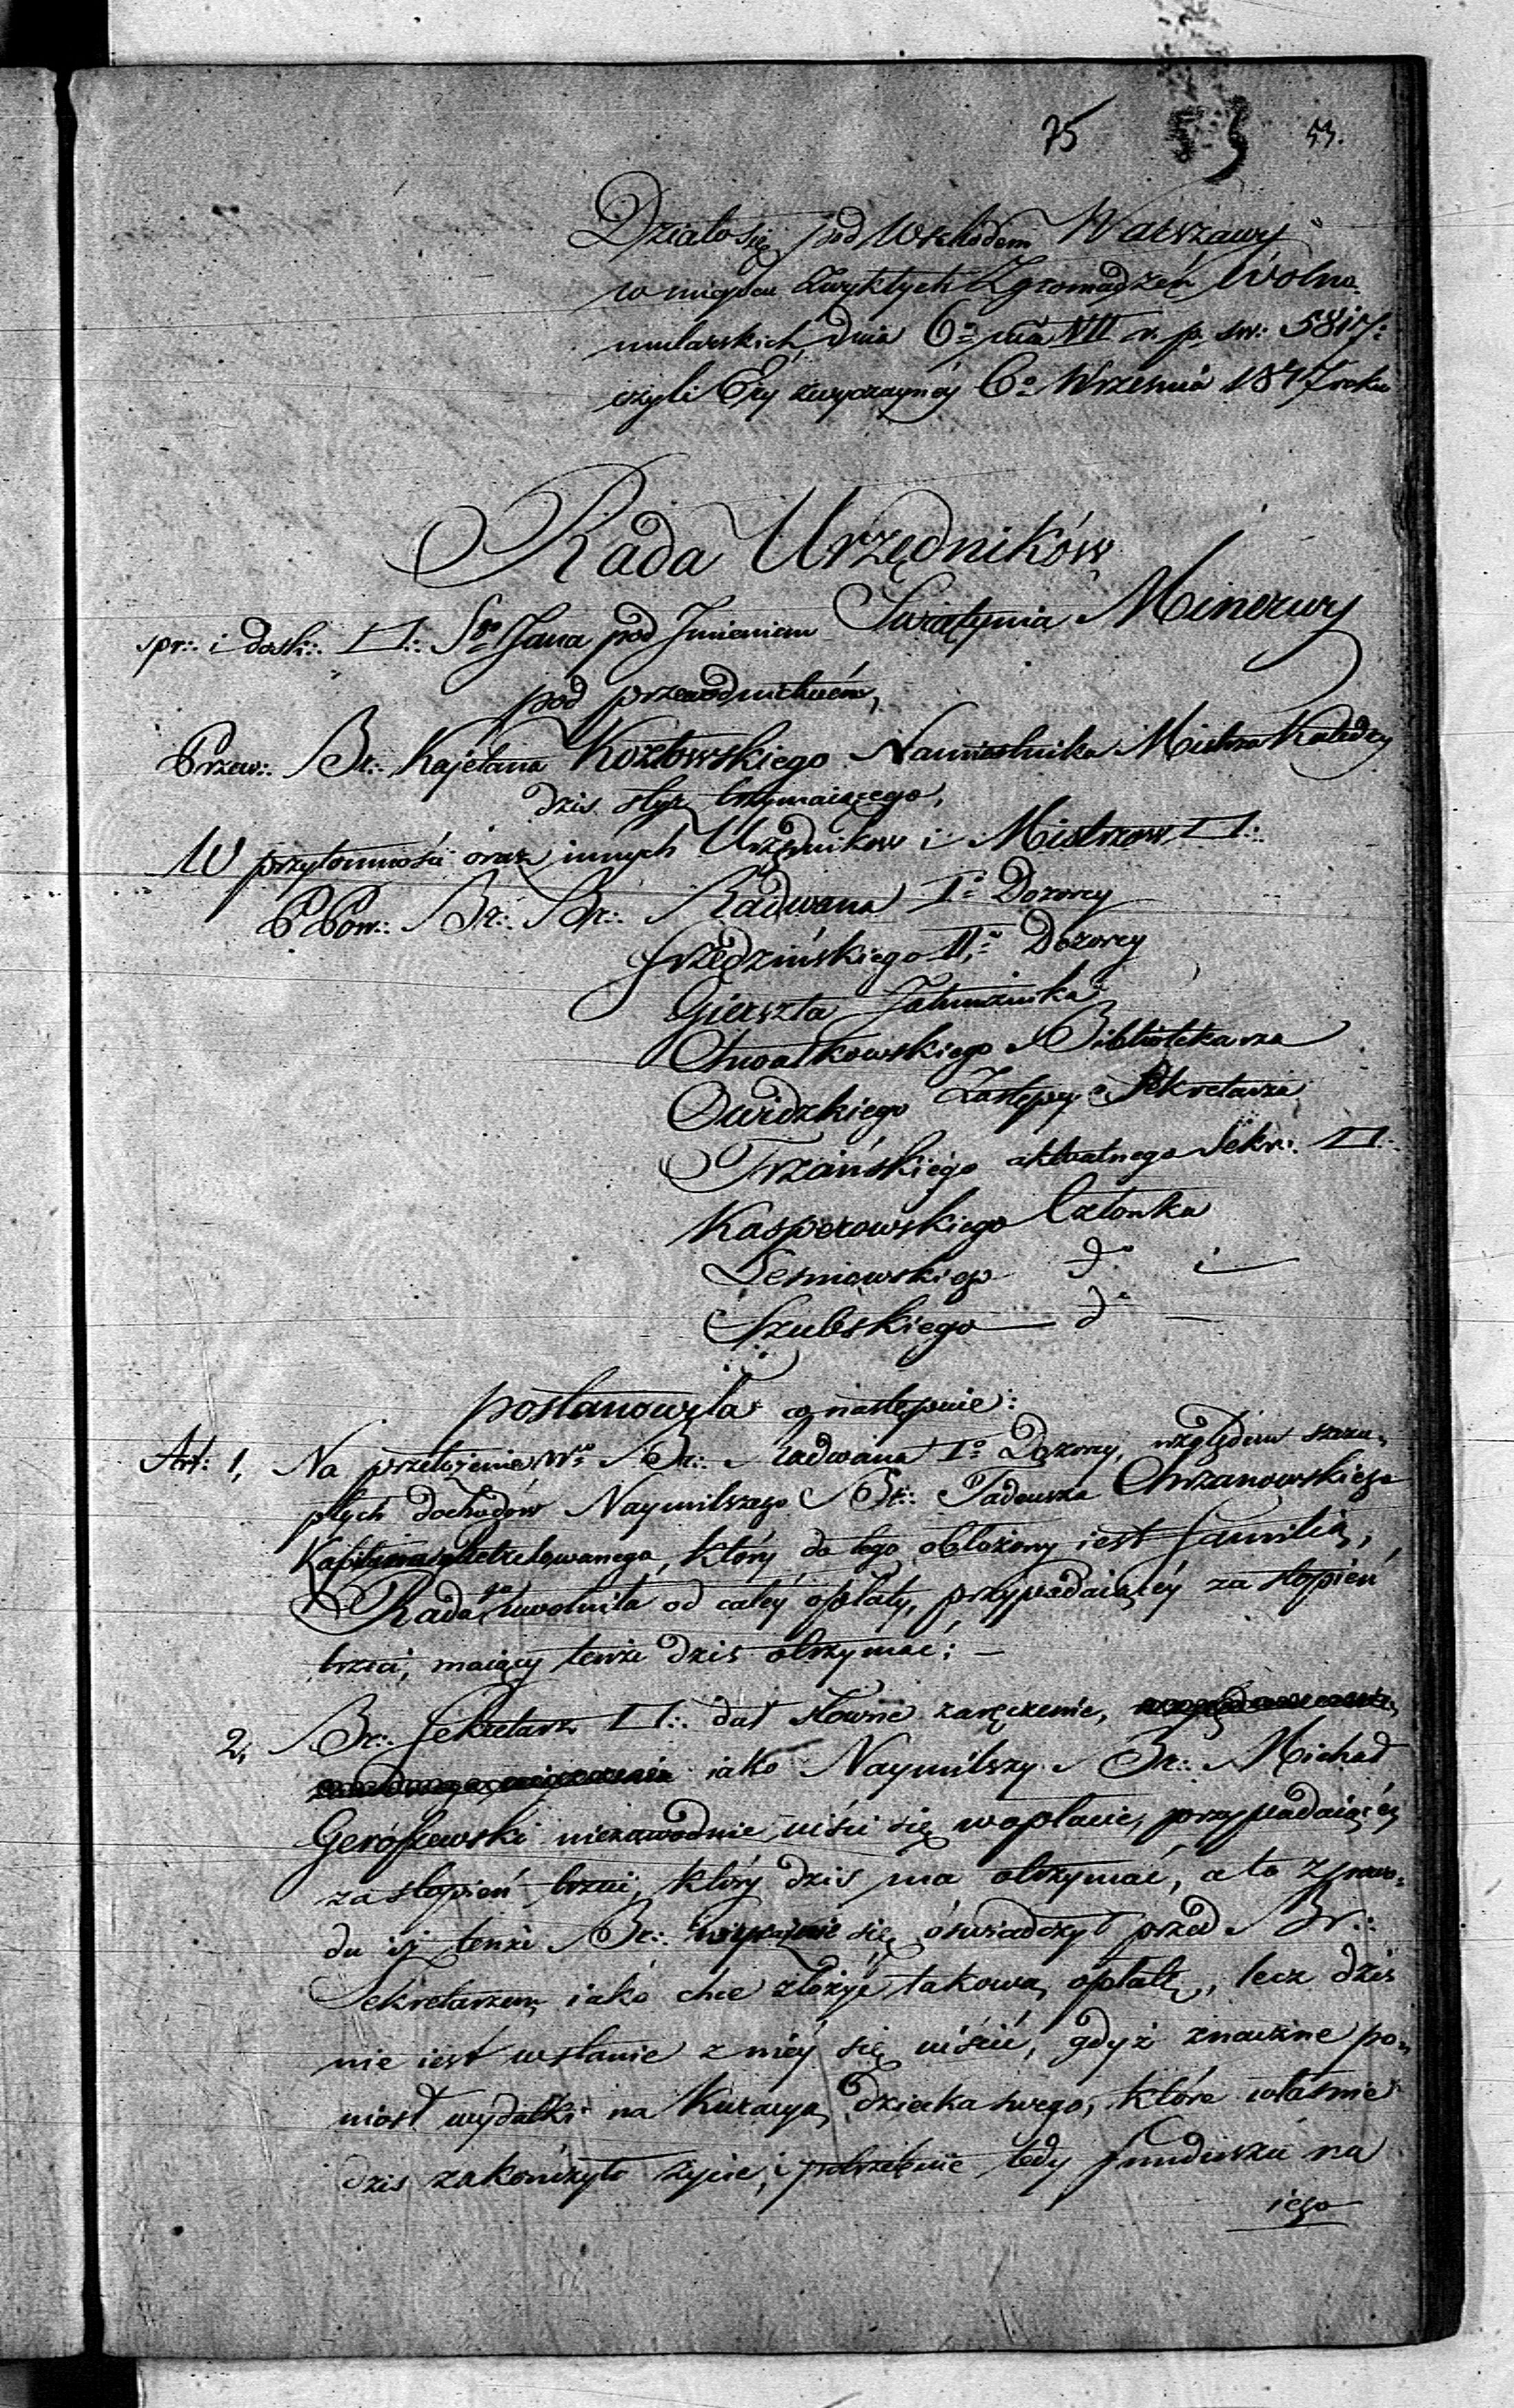 75 53.
Działo się pod Wschodem Warszawy
w mieyscu zwykłych Zgromadzeń Wolno
mularskich, dnia 6º mca VII r. p. sw: 5817:
czyli Ery zwyczayney 6º Września 1817 roku
Rada Urzędników
spr:. i dosk:. □:. Sgo Jana pod Imieniem Swiątynia Minerwy
pod przewodnictwem,
Przew:. Br:. Kajetana Kozłowskiego Namiestnika Mistrza Katedry
dzis ster trzymaiącego,
W przytomności oraz innych Urzędnikow i Mistrzow □:.
PPow:. Br:. Br:. Radwana Iº Dozorcy
IIº Dozorcy
Gierszta Jałmużnika
Chwałkowskiego Bibliotekarza
Owidzkiego Zastępcy Sekretarza
Trzcińskiego aktualnego Sekr:. □:.
Kasperowskiego Członka
Lesniowskiego dº i
Szubskiego — dº —
postanowiła co następuie:
Art: 1, Na przełożenie Br:. Radwana Iº Dozorcy, względem szczu„
płych dochodów Naymilszego Br:. Tadeusza Chrzanowskiego
Kapitana, który do tego obłożony iest familią,
Rada go uwolniła od całey opłaty, przypadaiącéy za stopień
trzeci, maiący tenże dzis otrzymać; —
2, Br:. Sekretarz □:. dał słowne zaręczenie,
iako Naymilszy Br:. Michał
niezawodnie uiści się w opłacie, przypadaiącéy
za stopień trzeci, który dzis ma otrzymać, a to z powo„
du iż tenże Br:. się oświadczył przed Br:.
Sekretarzem iako chce złożyć takową opłatę, lecz dzis
nie iest wstanie z niéy się uiścić, gdyż znaczne po„
niosł wydatki na Kuracyą dziecka swego, które właśnie
dzis zakończyło życie, i potrzebuie tedy funduszu na
iego